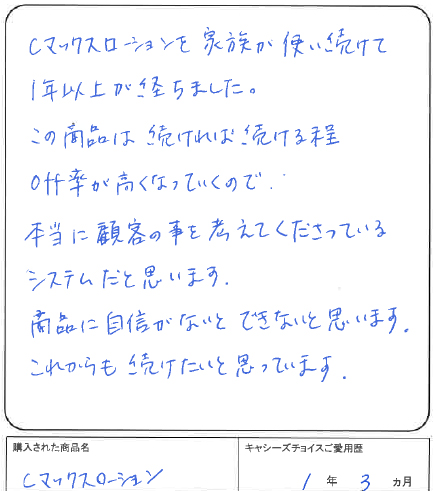 Cマックスローションを家族が使い続けて
1年以上が経ちました。
この商品は続ければ続ける程
Off率が高くなっていくので、
本当に顧客の事を考えてくださっている
システムだと思います.
商品に自信がないとできないと思います.
これからも続けたいと思っています.
購入された商品名
キャシーズチョイスご愛用歴
Cマックスローション
1年3ヵ月